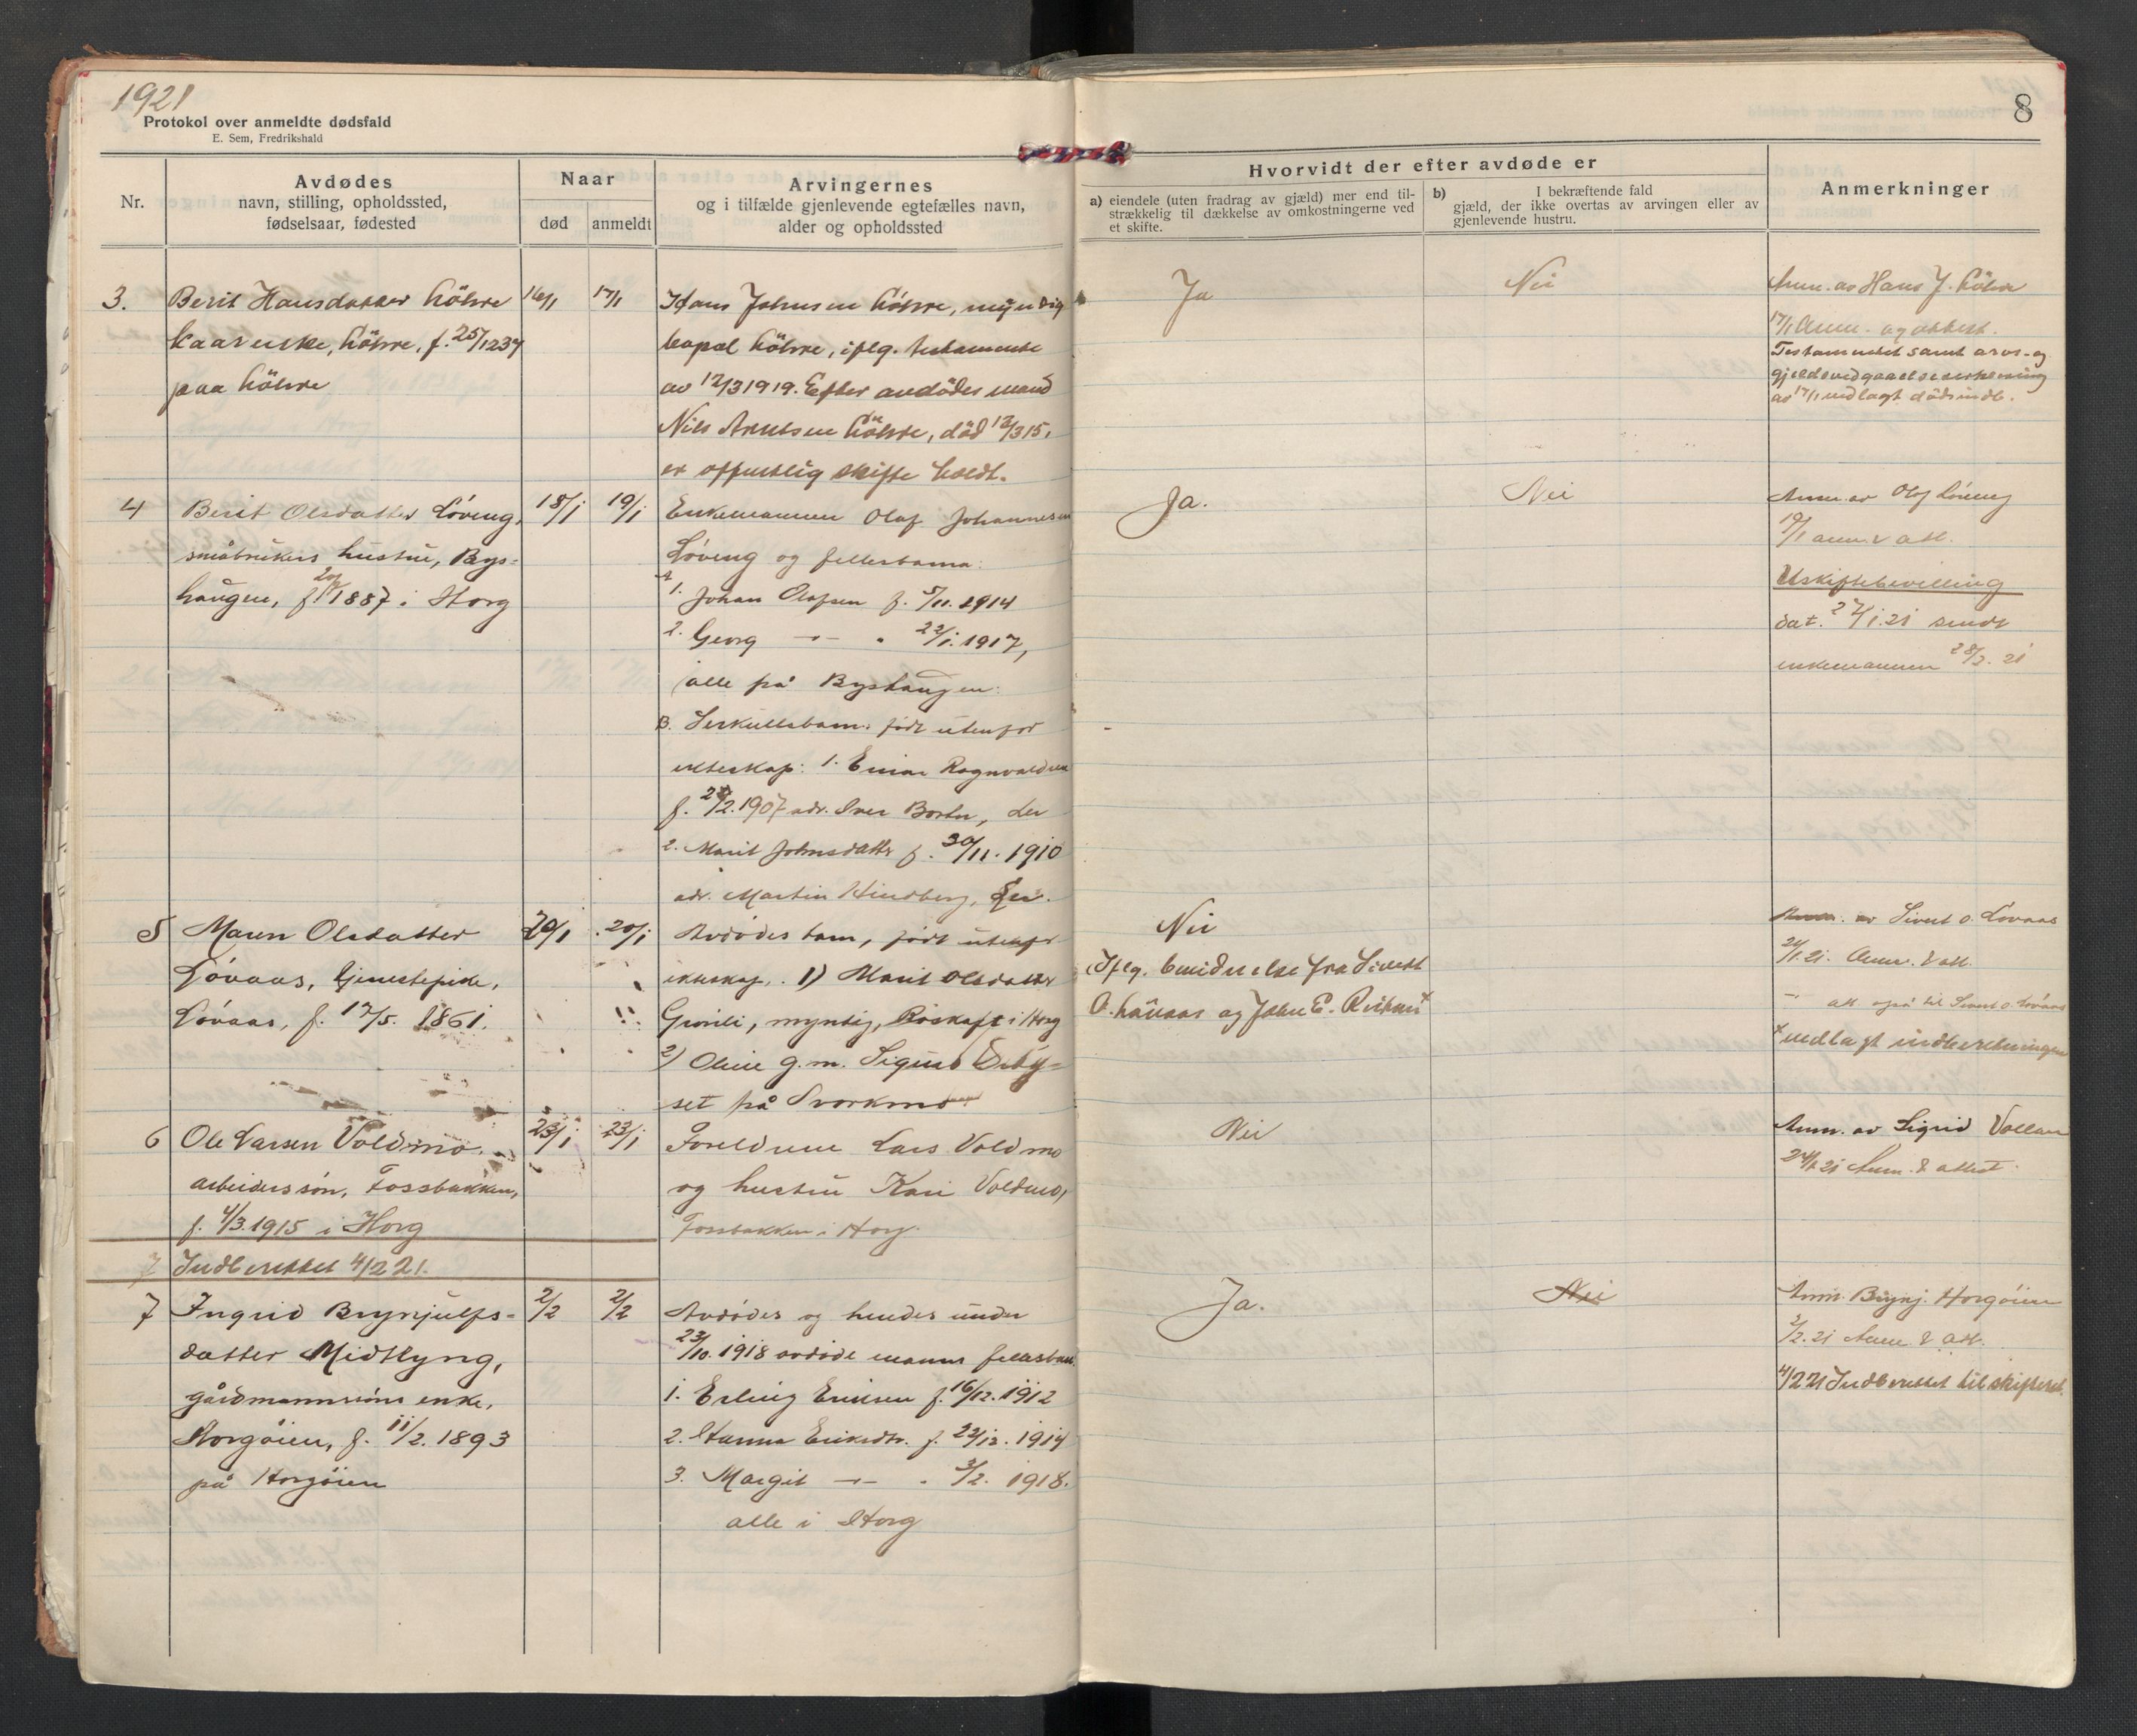 1921
8
Protokol over anmeldte dødsfald
E. Sem, Fredrikshald
Nr.
Avdødes
navn, stilling, opholdssted,
fødselsaar, fødested
Naar
død
anmeldt
Arvingernes
og i tilfælde gjenlevende egtefælles navn,
alder og opholdssted
Hvorvidt der efter avdøde er
a) eiendele (uten fradrag av gjæld) mer end til-
strækkelig til dækkelse av omkostningerne ved
et skifte.
b) I bekræftende fald
gjæld, der ikke overtas av arvingen eller av
gjenlevende hustru.
Anmerkninger
3. Berit Hansdatter Löhre
Löhre, f. 25/1
paa Löhre
16/1
17/1
Hans Johnsen Löhre, myndig
Löhre, iflg. testamente
av 12/3 1919. Efter avdödes mand
Nils Arntsen Löhre, död 12/3 15,
er offentlig skifte holdt.
Ja
Nei
Anm. av Hans J. Löhre
17/1 Anm. og attest.
Testamentet samt arvs- og
gjeldsvedgaaelseserklæring
av 17/1 vedlagt dödsindb.
4 Berit Olsdatter Løveng,
småbrukers hustru, Bys-
haugen, f. 20/1 1887 i Horg
18/1
19/1
Enkemannen Olaf Johannesen
Løveng og fellesbarna:
A
1. Johan Olafsen f. 5/11. 1914
2. Georg -"- " 22/1. 1917,
alle på Byshaugen.
B. Serkullsbarn, født utenfor
ekteskap: 1. Einar Ragnvaldsen
f. 1907 adr. Iver
2. Marit Johnsdatter f. 30/11. 1910
adr. Martin
Ja.
Nei
Anm. av Olaf Løveng
19/1 anm. & att.
Uskiftebevilling
dat. 27/1. 21 sendt
enkemannen 28/2. 21
5 Maren Olsdatter
Løvaas, tjenestepike,
Løvaas, f. 17/5. 1861.
20/1
20/1
Avdødes barn, født utenfor
ekteskap. 1) Marit Olsdatter
myndig, i Horg
2) Oline g.m. Sigurd
set på Svorkmo
Nei
Iflg. bevidnelse fra Sivert
O. Løvaas og John E.
av Sivert O. Løvaas
21. Anm. & att.
att. også til Sivert O. Løvaas
x vedlagt indberetningen
6 Ole Larsen Voldmo.
arbeiders søn, Fossbakken,
f. 4/3. 1915 i Horg
23/1
23/1
Foreldrene Lars Voldmo
og hustru Kari Voldmo,
Fossbakken i Horg.
Nei
Anm. av Sigrid Vollan
24/1 21 Anm. & attest.
7 Indberettet 4/2 21.
7 Ingrid Brynjulfs-
datter Midtlyng,
gårdmannssøns enke,
Horgøien, f. 11/2. 1893
på Horgøien
2/2
2/2
Avdødes og hendes under
23/10. 1918 avdøde manns fellesbarn
1. Erling Eriksen f. 16/12. 1912
2. Hanna Eriksdtr. f. 22/12. 1914
3. Margit -"- " 3/2. 1918.
alle i Horg
Ja.
Nei
Anm. Brynj. Horgøien
2/2. 21 Anm. & att.
4/2 21 Indberettet til skifteret.